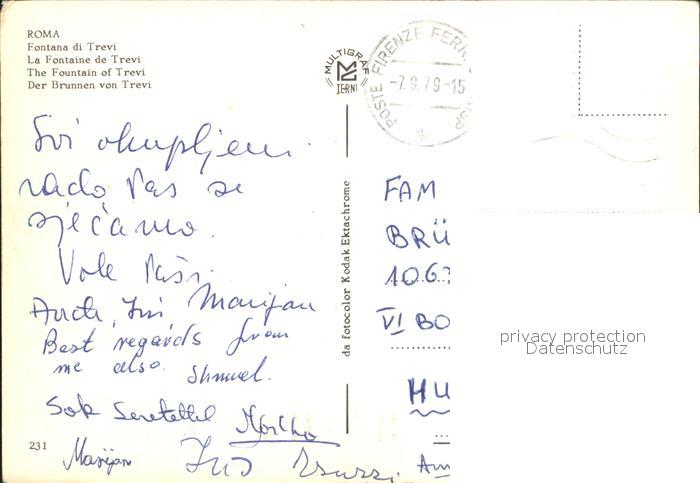 ROMA
Fontana di Trevi
La Fontaine de Trevi
The Fountain of Trevi
Der Brunnen von Trevi
MULTIGRAF
TERNI
POSTE FIRENZE FERR.
-7.9.79-15
Svi okupljeni
rado Vas se
sjećamo.
Vole Vaši
Marijan
Best regards from
me also. Shmuel.
Sok szeretettel
231
Marijan
da fotocolor Kodak Ektachrome
FAM
BRÜ
106
VI BO
HU
privacy protection
Datenschutz